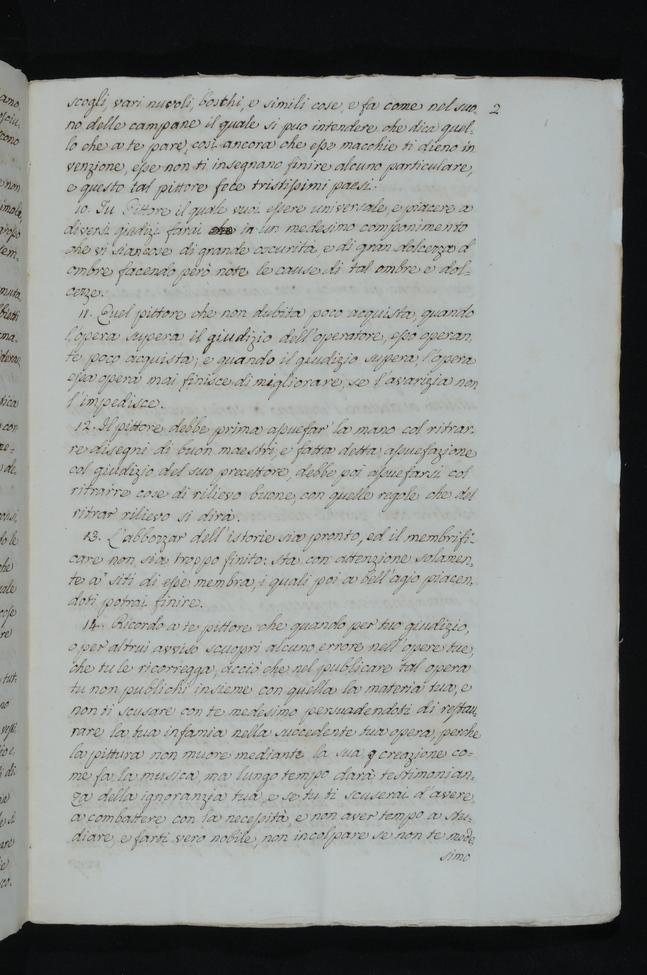 scogli, vari nuvoli, boschi, e simili cose, e fa come nel suo 2
no delle campane il quale si puo intendere che dica quel-
lo che a te pare, così ancora che esse macchie ti dieno in
venzione, esse non ti insegnano finire alcuno particulare,
e questo tal pittore fece tristissimi paesi.
10. Tu Pittore il quale vuoi essere universale, e piacere a
diversi giudizi farai che in un medesimo componimento
che vi sian cose di grande oscurità, e di gran dolcezza d
ombre facendo però note le cause di tal ombre e dol-
cezze.
11. Quel pittore che non dubita poco acquista, quando
l'opera supera il giudizio dell'operatore, esso operan,
te poco acquista; e quando il giudizio supera, l'opera
essa opera mai finisce di migliorare, se l'avarizia non
l'impedisce.
12. Il pittore debbe prima assuefar' la mano col ritrar-
re disegni di buon maestri, e fatta detta assuefazione
col giudizio del suo precettore, debbe poi assuefarsi col
ritrarre cose di rilievo buone, con quelle regole che del
ritrar rilievo si dirà.
13. L'abbozzar dell'istorie sia pronto, ed il membrifi-
care non sia troppo finito: sta con attenzione solamen,
te a' siti di esse membra, i quali poi a bell'agio piacen,
doti potrai finire.
14. Ricordo a te pittore che quando per tuo giudizio,
o per altrui avviso scuopri alcuno errore nell'opere tue,
che tu le ricorregga, acciò che nel publicare tal opera
tu non publichi insieme con quella la materia tua, e
non ti scusare con te medesimo persuadendoti di restau,
rare la tua infamia nella succedente tua opera, perche
la pittura non muore mediante la sua creazione co-
me fa la musica, ma lungo tempo darà testimonian-
za della ignoranzia tua, e se tu ti scuserai d'avere
a combattere con la necessità, e non aver tempo a stu-
diare, e farti vero nobile, non incolpare se non te mede
simo